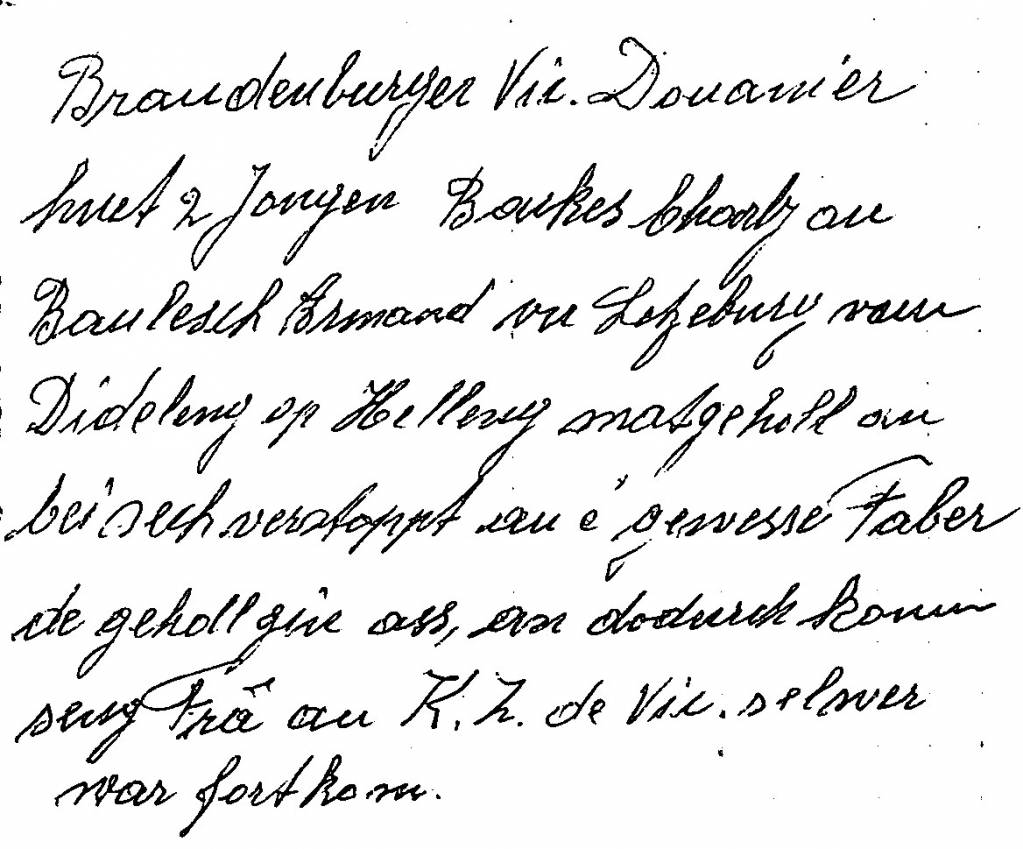 Brandenburger Vic. Douanier
huet 2 Jongen Backes Charly an
Baulesch Armand vu Letzeburg vum
Dideleng op Helleng matgeholl an
bei sech verstoppt an e gewesse Faber
de geholl gin ass, an dodurch koum
seng Frä an K.Z. de Vic. selwer
war fortkom.